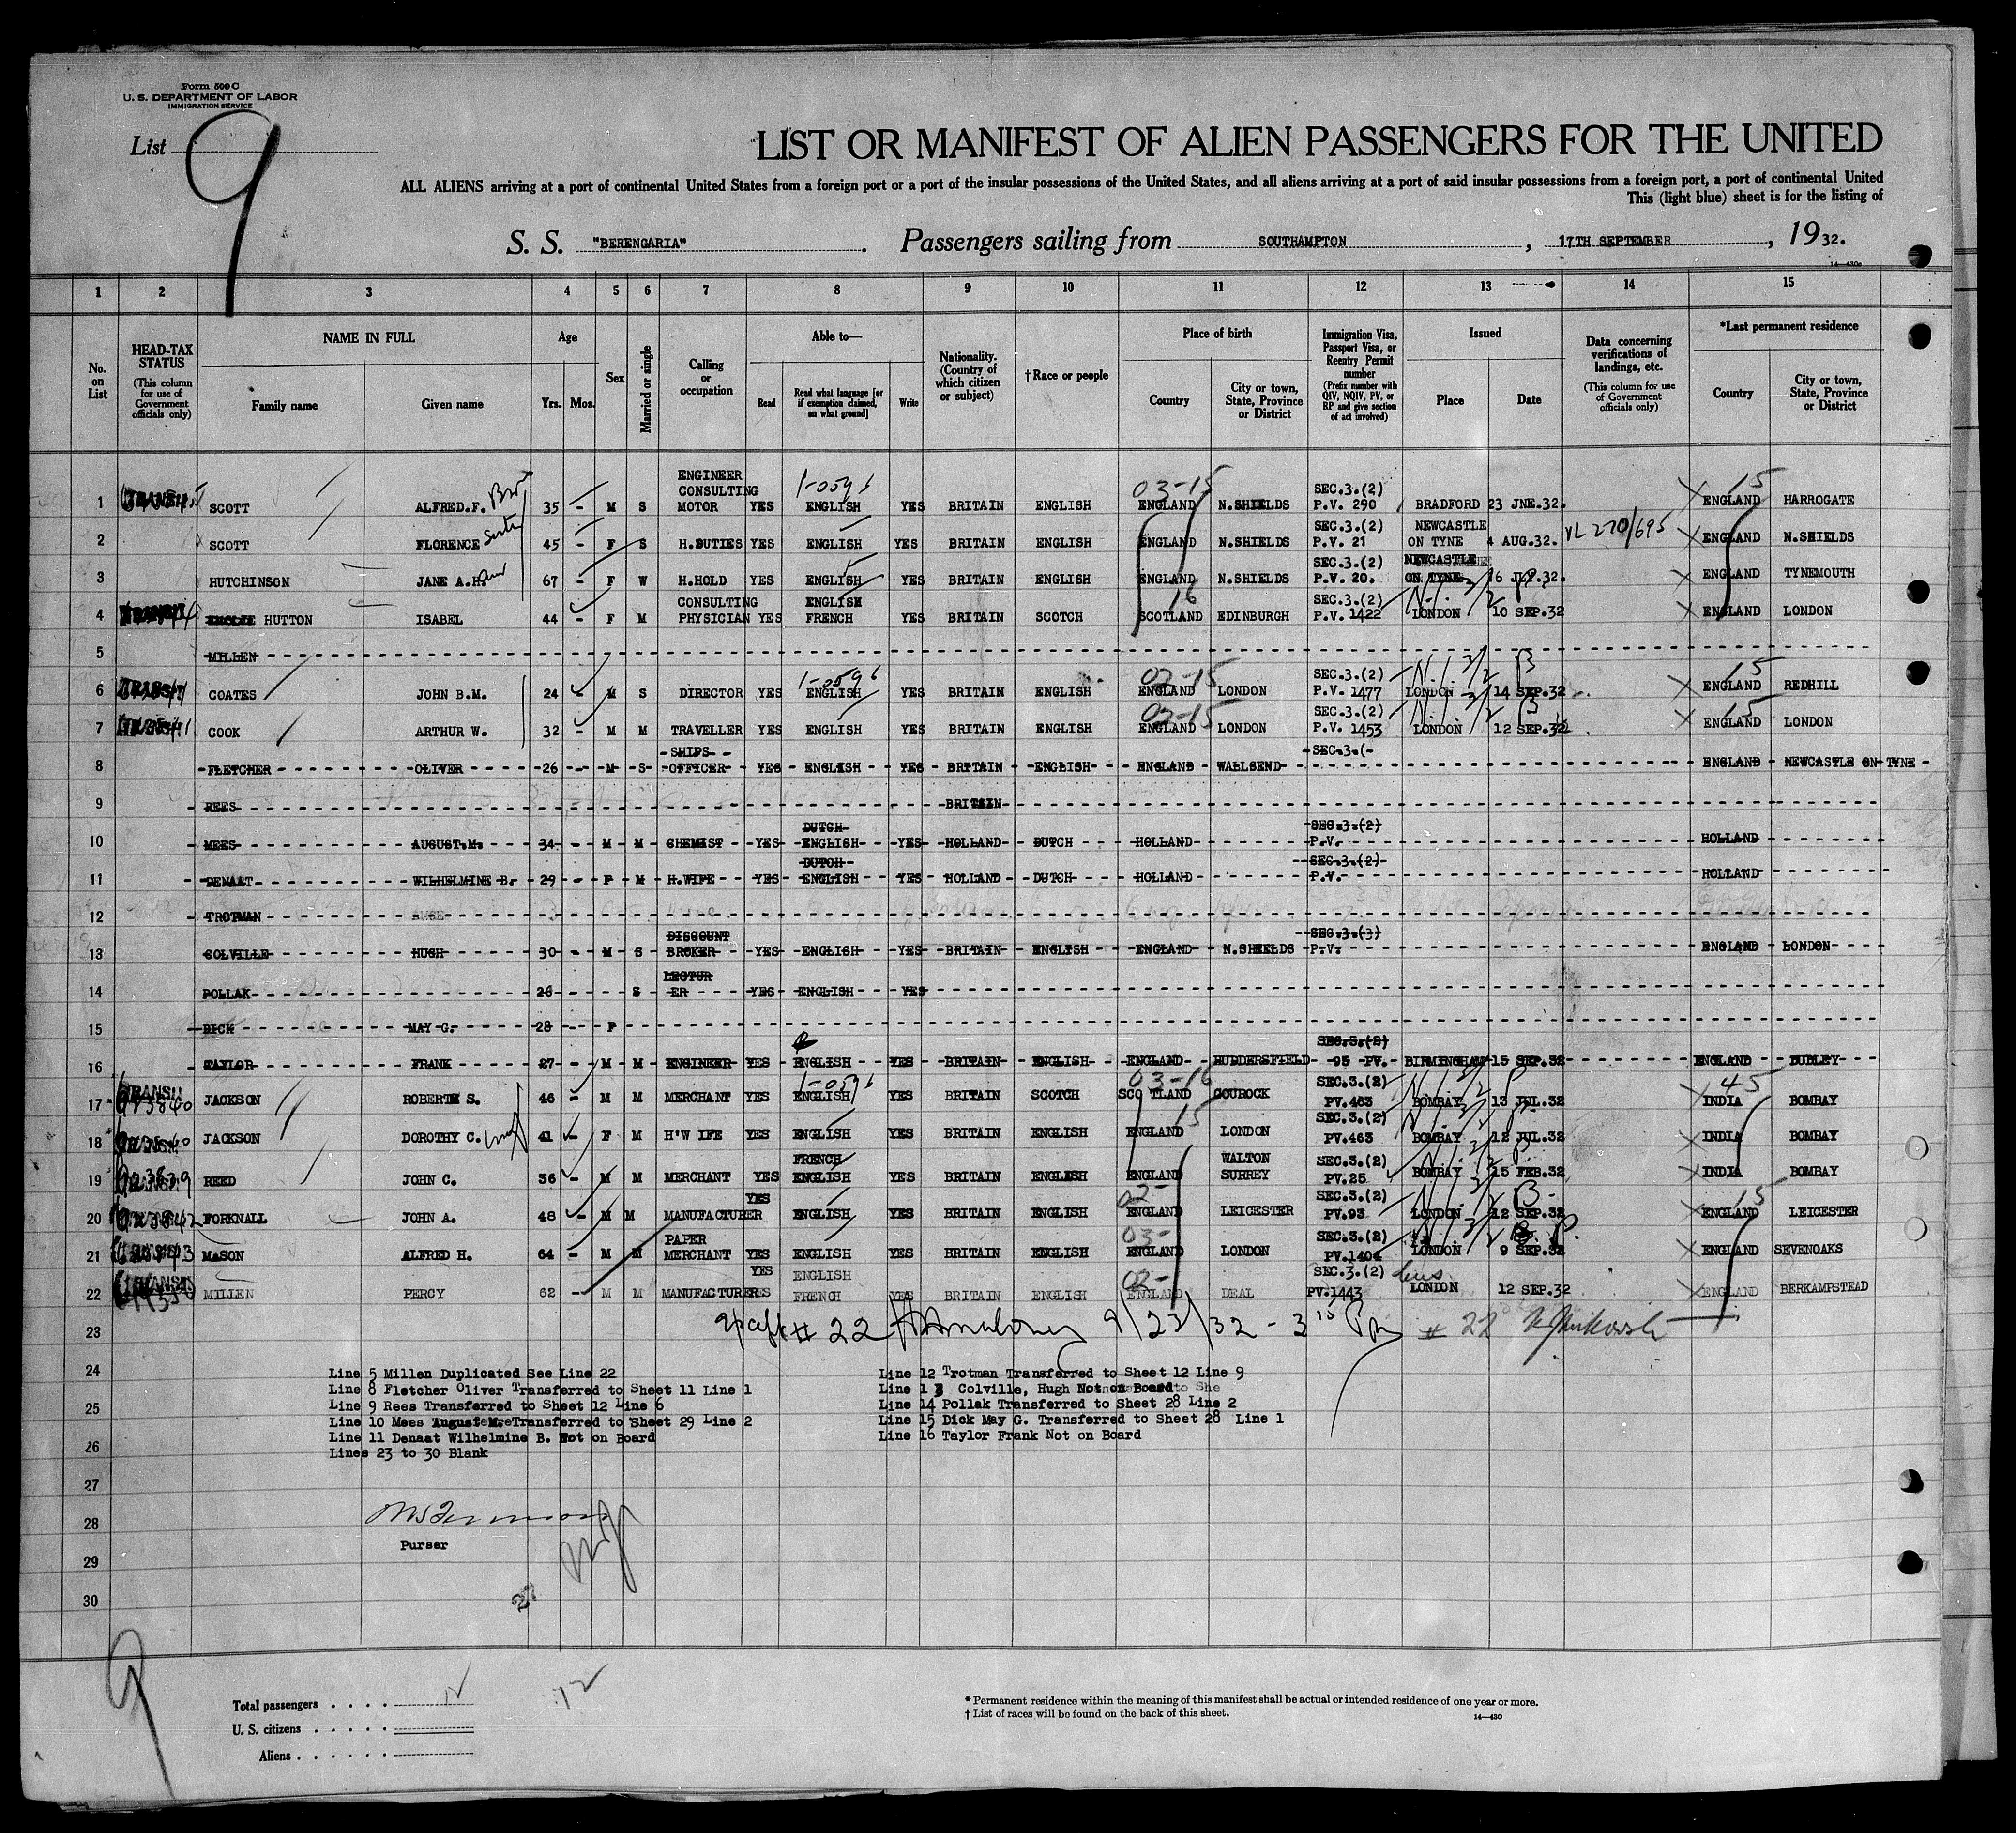 Form 500 C
U. S. DEPARTMENT OF LABOR
IMMIGRATION SERVICE
List 9
LIST OR MANIFEST OF ALIEN PASSENGERS FOR THE UNITED
ALL ALIENS arriving at a port of continental United States from a foreign port or a port of the insular possessions of the United States, and all aliens arriving at a port of said insular possessions from a foreign port, a port of continental United
This (light blue) sheet is for the listing of
S. S. "BERENGARIA". Passengers sailing from SOUTHAMPTON, 17TH SEPTEMBER, 1932.
14—430c
1 2 3 4 5 6 7 8 9 10 11 12 13 14 15
No. on List
HEAD-TAX STATUS (This column for use of Government officials only)
NAME IN FULL
Family name Given name
Age Yrs. Mos.
Sex
Married or single
Calling or occupation
Able to—
Read Read what language [or if exemption claimed, on what ground] Write
Nationality. (Country of which citizen or subject)
†Race or people
Place of birth
Country City or town, State, Province or District
Immigration Visa, Passport Visa, or Reentry Permit number (Prefix number with QIV, NQIV, PV, or RP and give section of act involved)
Issued
Place Date
Data concerning verifications of landings, etc. (This column for use of Government officials only)
*Last permanent residence
Country City or town, State, Province or District
1 SCOTT ALFRED.F. Bro 35 - M S ENGINEER CONSULTING MOTOR YES 1-0596 ENGLISH YES BRITAIN ENGLISH 03-15 ENGLAND N.SHIELDS SEC.3.(2) P.V. 290 BRADFORD 23 JNE.32. 15 ENGLAND HARROGATE
2 SCOTT FLORENCE Sister 45 - F S H.DUTIES YES ENGLISH YES BRITAIN ENGLISH ENGLAND N.SHIELDS SEC.3.(2) P.V. 21 NEWCASTLE ON TYNE 4 AUG.32. VL 270/695 ENGLAND N.SHIELDS
3 HUTCHINSON JANE A.H. 67 - F W H.HOLD YES ENGLISH YES BRITAIN ENGLISH ENGLAND N.SHIELDS SEC.3.(2) P.V. 20. NEWCASTLE ON TYNE ENGLAND TYNEMOUTH
4 HUTTON ISABEL 44 - F M CONSULTING PHYSICIAN YES ENGLISH FRENCH YES BRITAIN SCOTCH 16 SCOTLAND EDINBURGH SEC.3.(2) P.V. 1422 LONDON 10 SEP.32 ENGLAND LONDON
5 MILLEN
6 COATES JOHN B.M. 24 - M S DIRECTOR YES 1-0596 ENGLISH YES BRITAIN ENGLISH 02-15 ENGLAND LONDON SEC.3.(2) P.V. 1477 LONDON 14 SEP.32 15 ENGLAND REDHILL
7 COOK ARTHUR W. 32 - M M TRAVELLER YES ENGLISH YES BRITAIN ENGLISH 02-15 ENGLAND LONDON SEC.3.(2) P.V. 1453 LONDON 12 SEP.32 15 ENGLAND LONDON
8 FLETCHER OLIVER 26 - M S SHIPS OFFICER YES ENGLISH YES BRITAIN ENGLISH ENGLAND WALLSEND SEC.3.( ENGLAND NEWCASTLE ON TYNE
9 REES BRITAIN
10 MEES AUGUST.M. 34 - M M CHEMIST YES DUTCH ENGLISH YES HOLLAND DUTCH HOLLAND SEC.3.(2) P.V. HOLLAND
11 DENAAT WILHELMINE B. 29 - F M H.WIFE YES DUTCH ENGLISH YES HOLLAND DUTCH HOLLAND SEC.3.(2) P.V. HOLLAND
12 TROTMAN
13 COLVILLE HUGH 30 - M S DISCOUNT BROKER YES ENGLISH YES BRITAIN ENGLISH ENGLAND N.SHIELDS SEC.3.(3) P.V. ENGLAND LONDON
14 POLLAK 26 - S LECTURER YES ENGLISH YES
15 DICK MAY G. 28 - F
16 TAYLOR FRANK 27 - M M ENGINEER YES ENGLISH YES BRITAIN ENGLISH ENGLAND HUDDERSFIELD SEC.3.(2) 95 PV. BIRMINGHAM 15 SEP.32 ENGLAND DUDLEY
17 JACKSON ROBERT S. 46 - M M MERCHANT YES 1-0596 ENGLISH YES BRITAIN SCOTCH 03-16 SCOTLAND GOUROCK SEC.3.(2) PV.463 BOMBAY 13 JUL.32 45 INDIA BOMBAY
18 JACKSON DOROTHY C. wife 41 - F M H'WIFE YES ENGLISH YES BRITAIN ENGLISH 15 ENGLAND LONDON SEC.3.(2) PV.463 BOMBAY 12 JUL.32 INDIA BOMBAY
19 REED JOHN C. 36 - M M MERCHANT YES FRENCH ENGLISH YES BRITAIN ENGLISH ENGLAND WALTON SURREY SEC.3.(2) PV.25 BOMBAY 15 FEB.32 INDIA BOMBAY
20 FORKNALL JOHN A. 48 - M M MANUFACTURER YES ENGLISH YES BRITAIN ENGLISH 02- ENGLAND LEICESTER SEC.3.(2) PV.93 LONDON 12 SEP.32 15 ENGLAND LEICESTER
21 MASON ALFRED H. 64 - M M PAPER MERCHANT YES ENGLISH YES BRITAIN ENGLISH 03- ENGLAND LONDON SEC.3.(2) PV.1404 LONDON 9 SEP.32 ENGLAND SEVENOAKS
22 MILLEN PERCY 62 - M M MANUFACTURER YES ENGLISH FRENCH YES BRITAIN ENGLISH 02- ENGLAND DEAL SEC.3.(2) PV.1443 LONDON 12 SEP.32 ENGLAND BERKAMPSTEAD
23 # 22 9/23/32 - 3 15 Pm # 22
24
25
26
27
28
29
30
Line 5 Millen Duplicated See Line 22
Line 8 Fletcher Oliver Transferred to Sheet 11 Line 1
Line 9 Rees Transferred to Sheet 12 Line 6
Line 10 Mees August M. Transferred to Sheet 29 Line 2
Line 11 Denaat Wilhelmine B. Not on Board
Lines 23 to 30 Blank
Line 12 Trotman Transferred to Sheet 12 Line 9
Line 13 Colville, Hugh Not on Board
Line 14 Pollak Transferred to Sheet 28 Line 2
Line 15 Dick May G. Transferred to Sheet 28 Line 1
Line 16 Taylor Frank Not on Board
Purser
27
9
Total passengers . . . . 12
U. S. citizens . . . . .
Aliens . . . . . .
* Permanent residence within the meaning of this manifest shall be actual or intended residence of one year or more.
† List of races will be found on the back of this sheet.
14—430